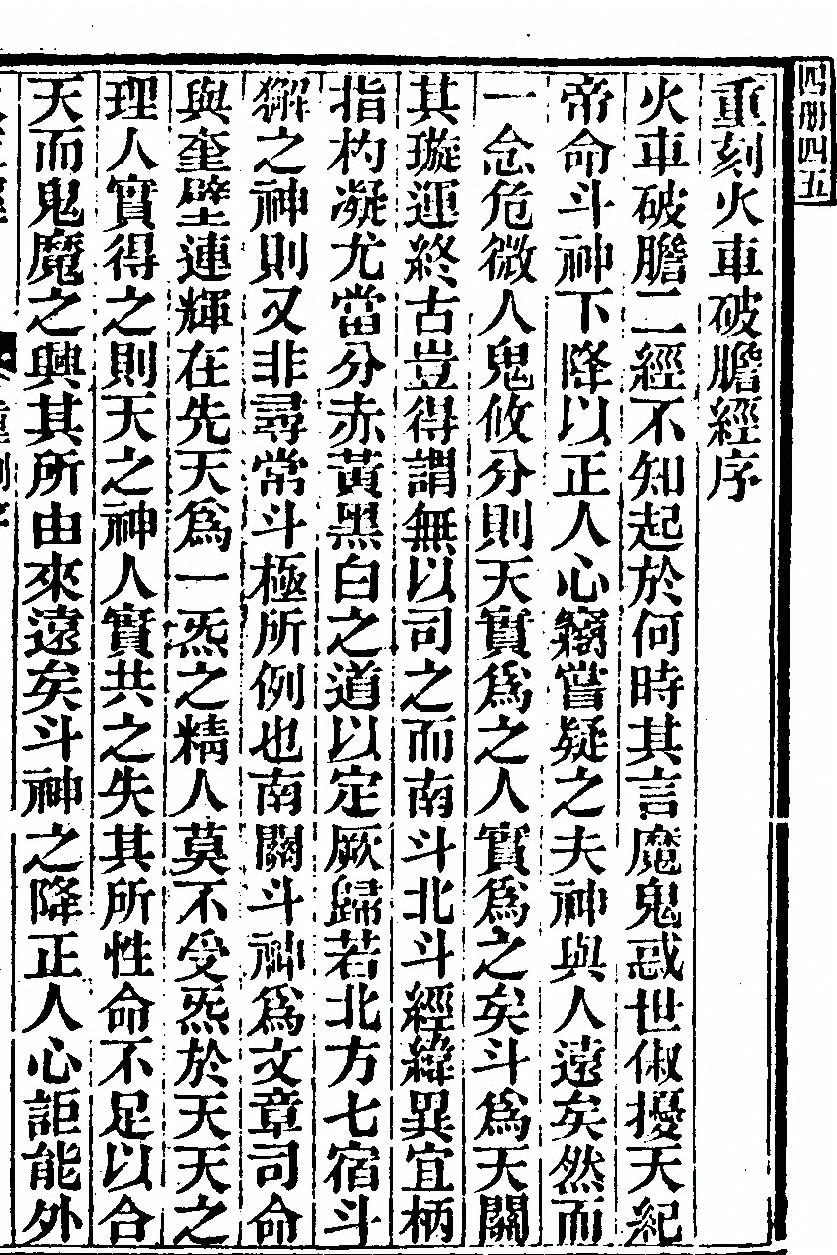 四册四五
重刻火車破膽經序
火車破膽二經不知起於何時其言魔鬼惑世俶擾天紀
帝命斗神下降以正人心竊嘗疑之夫神與人遠矣然而
一念危微人鬼攸分則天實爲之人實爲之矣斗爲天關
其璇運終古豈得謂無以司之而南斗北斗經緯異宜柄
指杓凝尤當分赤黃黑白之道以定厥歸若北方七宿斗
獬之神則又非尋常斗極所例也南關斗神爲文章司命
與奎壁連輝在先天爲一炁之精人莫不受炁於天天之
理人實得之則天之神人實共之失其所性命不足以合
天而鬼魔之興其所由來遠矣斗神之降正人心詎能外